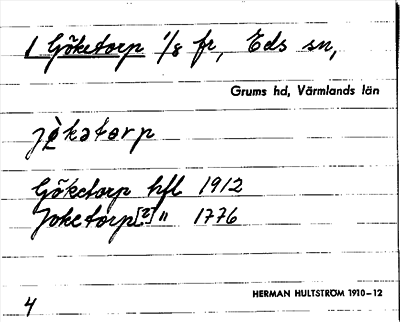 1 Göketorp 1/8 fr, Eds sn,
Grums hd, Värmlands län
jö̀kətɑrp
Göketorp hfl 1912
Joketorp[?] " 1776
4
HERMAN HULTSTRÖM 1910–12